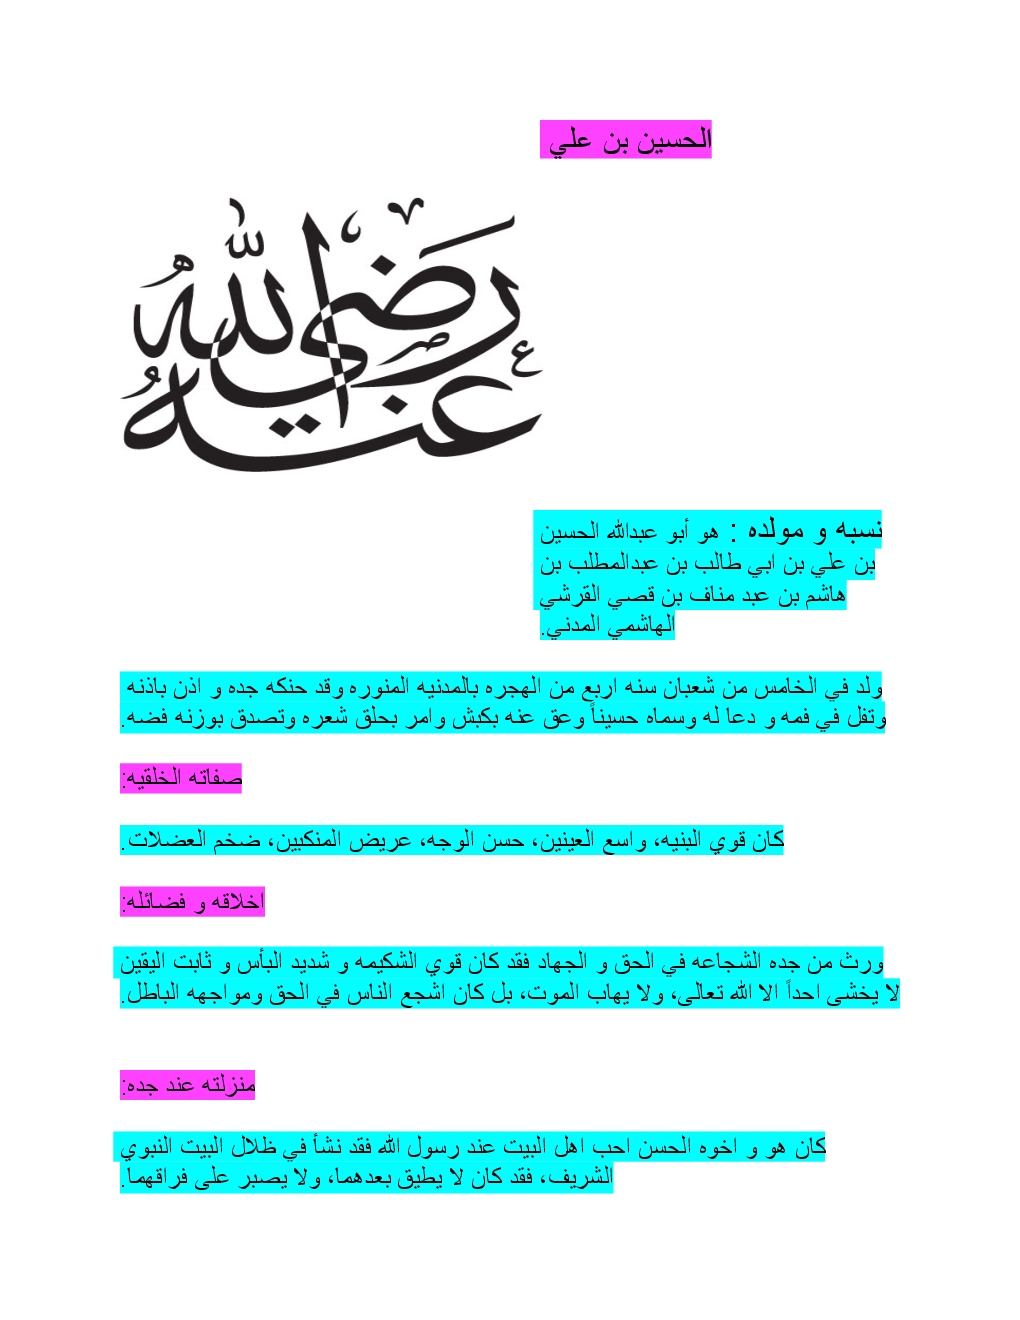 الحسين بن علي
رضي الله
عنه
نسبه و مولده : هو أبو عبدالله الحسين
بن علي بن ابي طالب بن عبدالمطلب بن
هاشم بن عبد مناف بن قصي القرشي
الهاشمي المدني.
ولد في الخامس من شعبان سنه اربع من الهجره بالمدنيه المنوره وقد حنكه جده و اذن باذنه
وتفل في فمه و دعا له وسماه حسيناً وعق عنه بكبش وامر بحلق شعره وتصدق بوزنه فضه.
صفاته الخلقيه:
كان قوي البنيه، واسع العينين، حسن الوجه، عريض المنكبين، ضخم العضلات.
اخلاقه و فضائله:
ورث من جده الشجاعه في الحق و الجهاد فقد كان قوي الشكيمه و شديد البأس و ثابت اليقين
لا يخشى احداً الا الله تعالى، ولا يهاب الموت، بل كان اشجع الناس في الحق ومواجهه الباطل.
منزلته عند جده:
كان هو و اخوه الحسن احب اهل البيت عند رسول الله فقد نشأ في ظلال البيت النبوي
الشريف، فقد كان لا يطيق بعدهما، ولا يصبر على فراقهما.